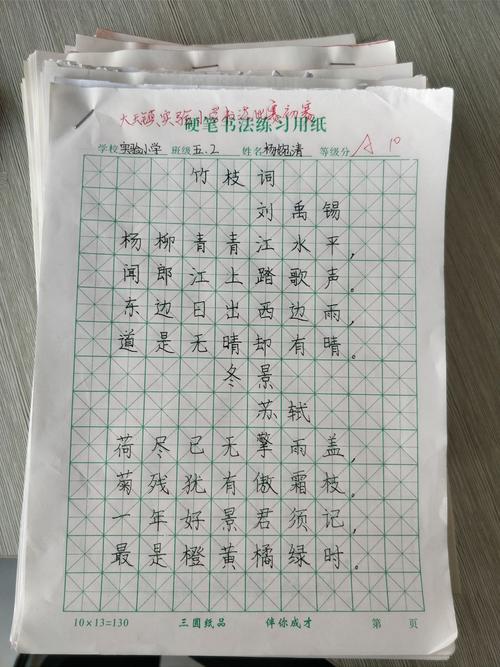 大天镇实验小学书法比赛初赛
硬笔书法练习用纸
学校 实验小学 班级 五.2 姓名 杨婉清 等级分 A 10
竹枝词
刘禹锡
杨柳青青江水平，
闻郎江上踏歌声。
东边日出西边雨，
道是无晴却有晴。
冬景
苏轼
荷尽已无擎雨盖，
菊残犹有傲霜枝。
一年好景君须记，
最是橙黄橘绿时。
10×13=130 三圆纸品 伴你成才 第 页